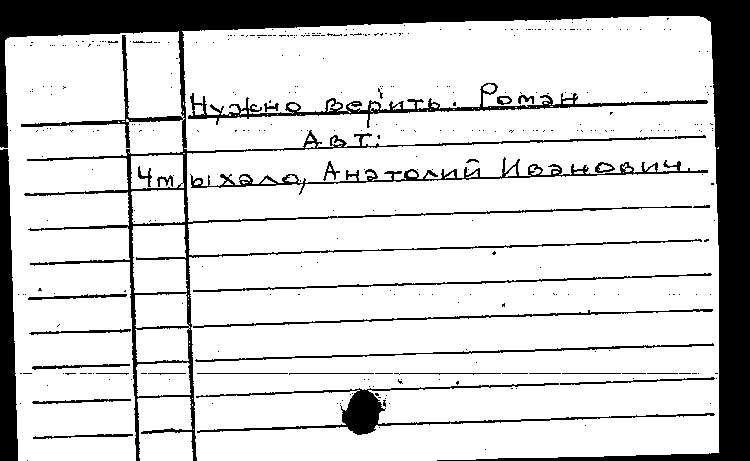 Нужно верить. Роман
Авт:
Чмыхало, Анатолий Иванович.